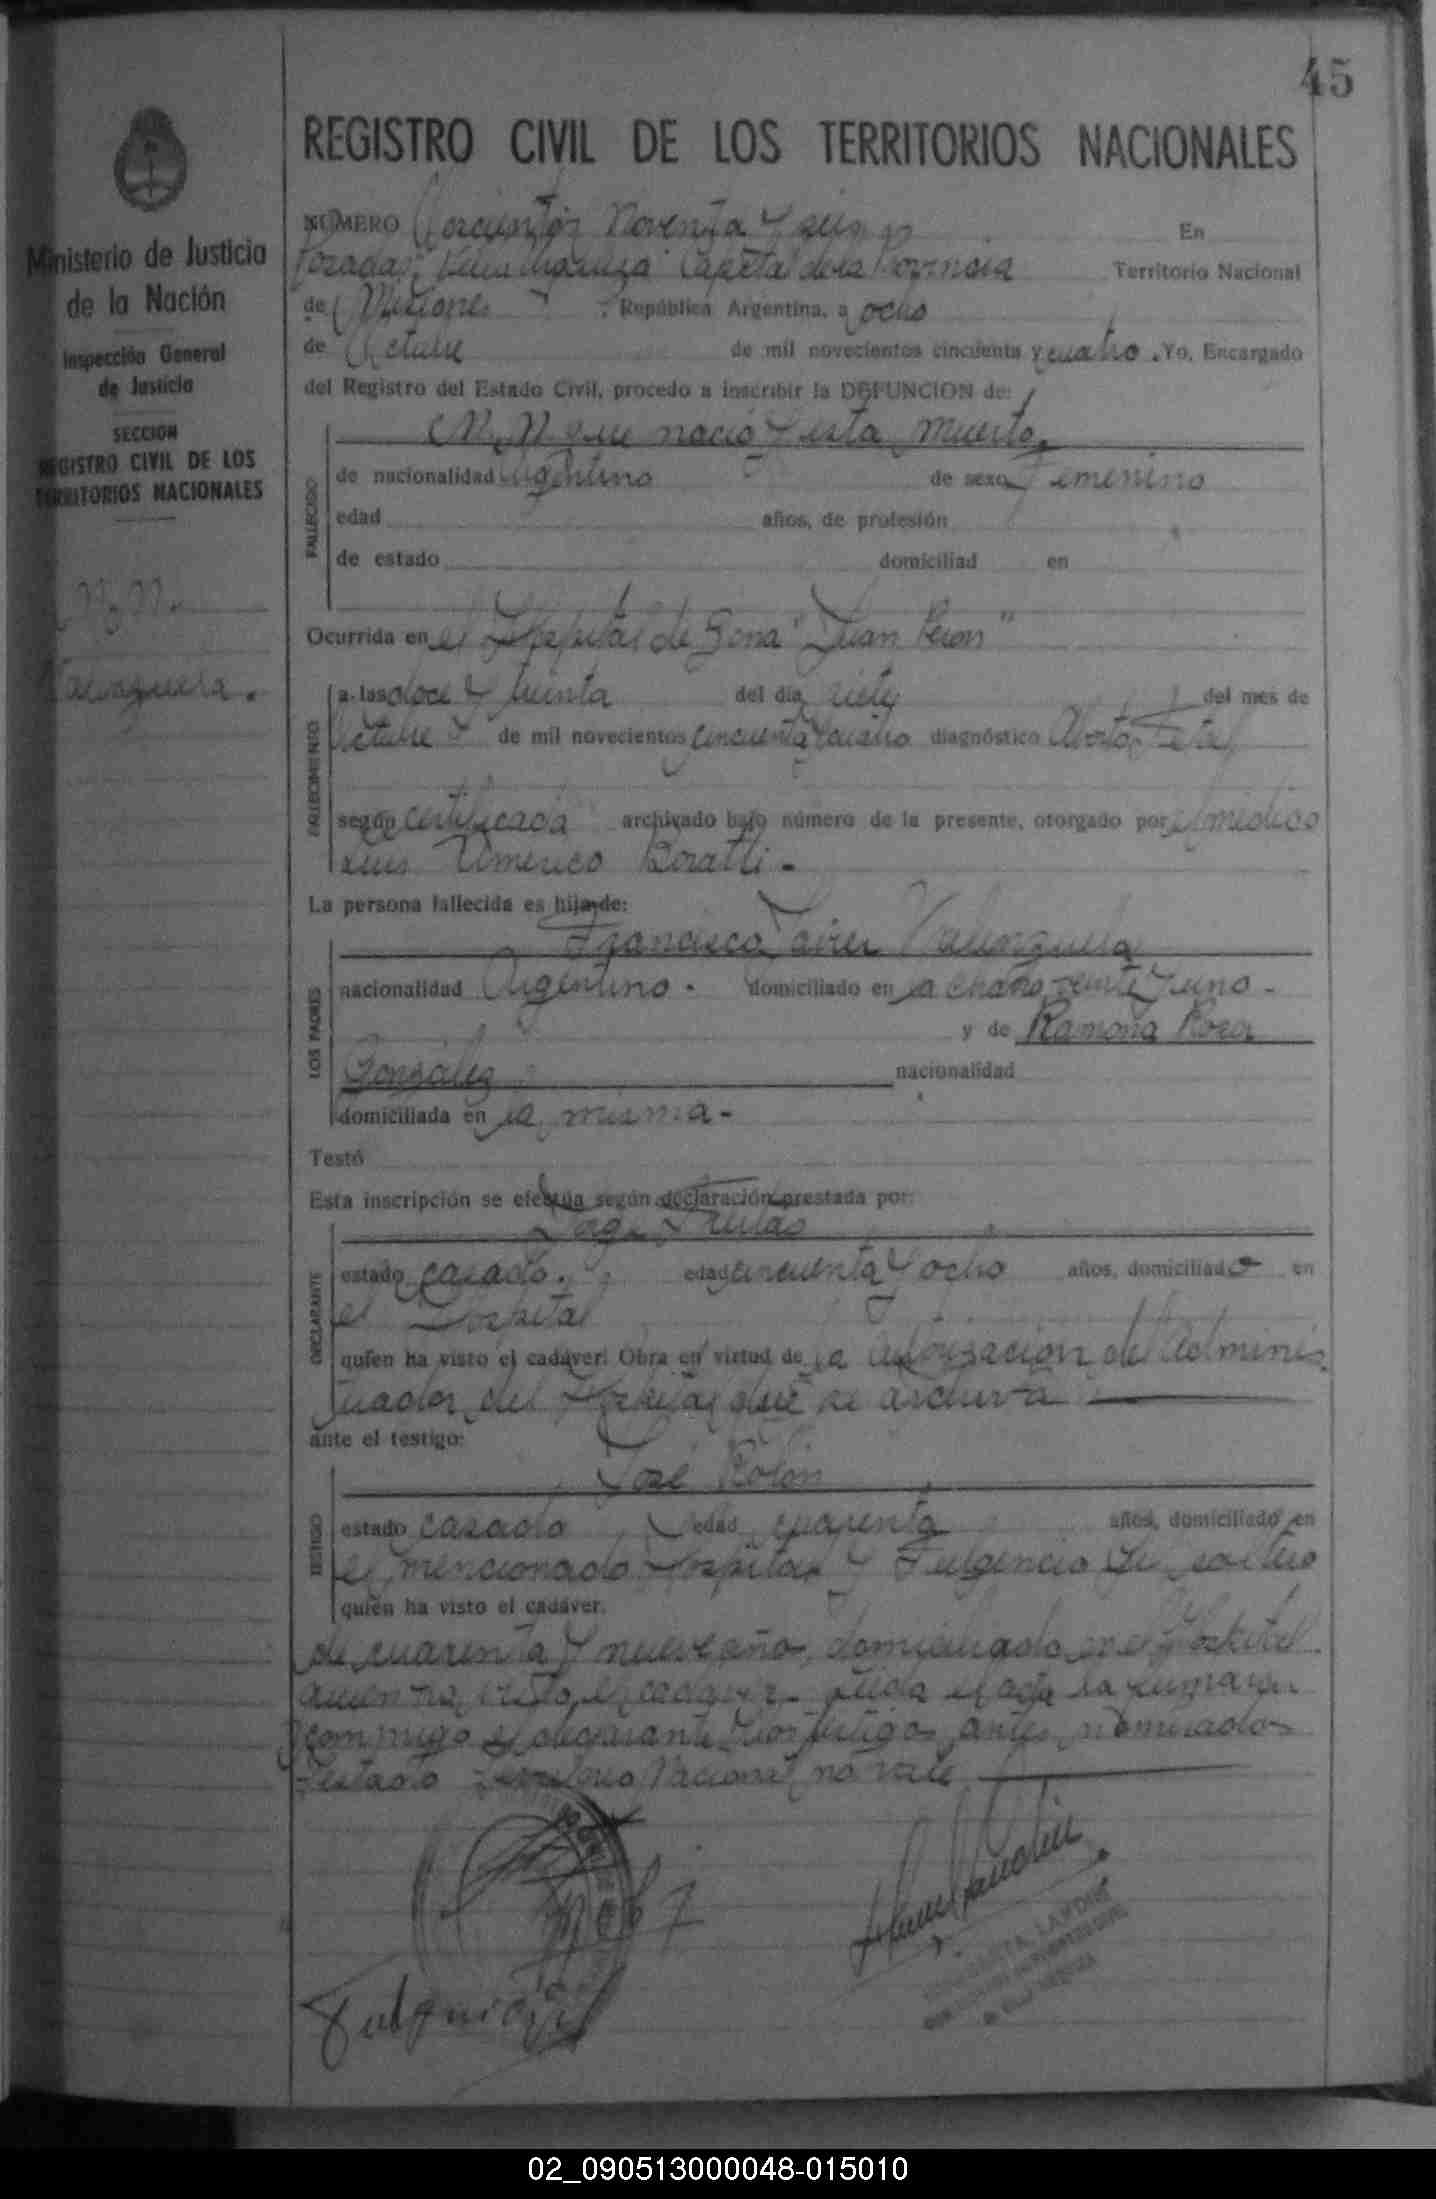 45
REGISTRO CIVIL DE LOS TERRITORIOS NACIONALES
Ministerio de Justicia
de la Nación
Inspección General
de Justicia
SECCION
REGISTRO CIVIL DE LOS
TERRITORIOS NACIONALES
N.N.
Valenzuela.
NUMERO Noventa y seis En
Posadas, Capital de la Provincia Territorio Nacional
de Misiones República Argentina, a ocho
de Octubre de mil novecientos cincuenta y cuatro. Yo, Encargado
del Registro del Estado Civil, procedo a inscribir la DEFUNCION de:
N.N que nació y esta muerto.
FALLECIDO
de nacionalidad Argentino de sexo Femenino
edad años, de profesión
de estado domiciliad en
Ocurrida en el Hospital de Zona "Juan Peron"
FALLECIMIENTO
a las doce y treinta del día siete del mes de
Octubre de mil novecientos cincuenta y cuatro diagnóstico Aborto Fetal
según certificado archivado bajo número de la presente, otorgado por el médico
Luis Americo Boratti -
La persona fallecida es hija de:
Francisco Javier Valenzuela
LOS PADRES
nacionalidad Argentino. domiciliado en la chacra veinte y uno -
y de Ramona Rosa
González nacionalidad
domiciliada en la misma -
Testó
Esta inscripción se efectúa según declaración prestada por:
Jorge Freitas
DECLARANTE
estado casado. edad cincuenta y ocho años, domiciliado en
el Hospital
quien ha visto el cadáver. Obra en virtud de la autorización del Adminis
trador del Hospital que se archiva
ante el testigo:
José Rolon
TESTIGO
estado casado edad cuarenta años, domiciliado en
el mencionado Hospital y Fulgencio Gil soltero
quien ha visto el cadáver.
de cuarenta y nueve años, domiciliado en el Hospital
quien ha visto el cadaver. Leida el acta la firmaron
conmigo el declarante y los testigos antes nombrados
Testado Territorio Nacional no vale